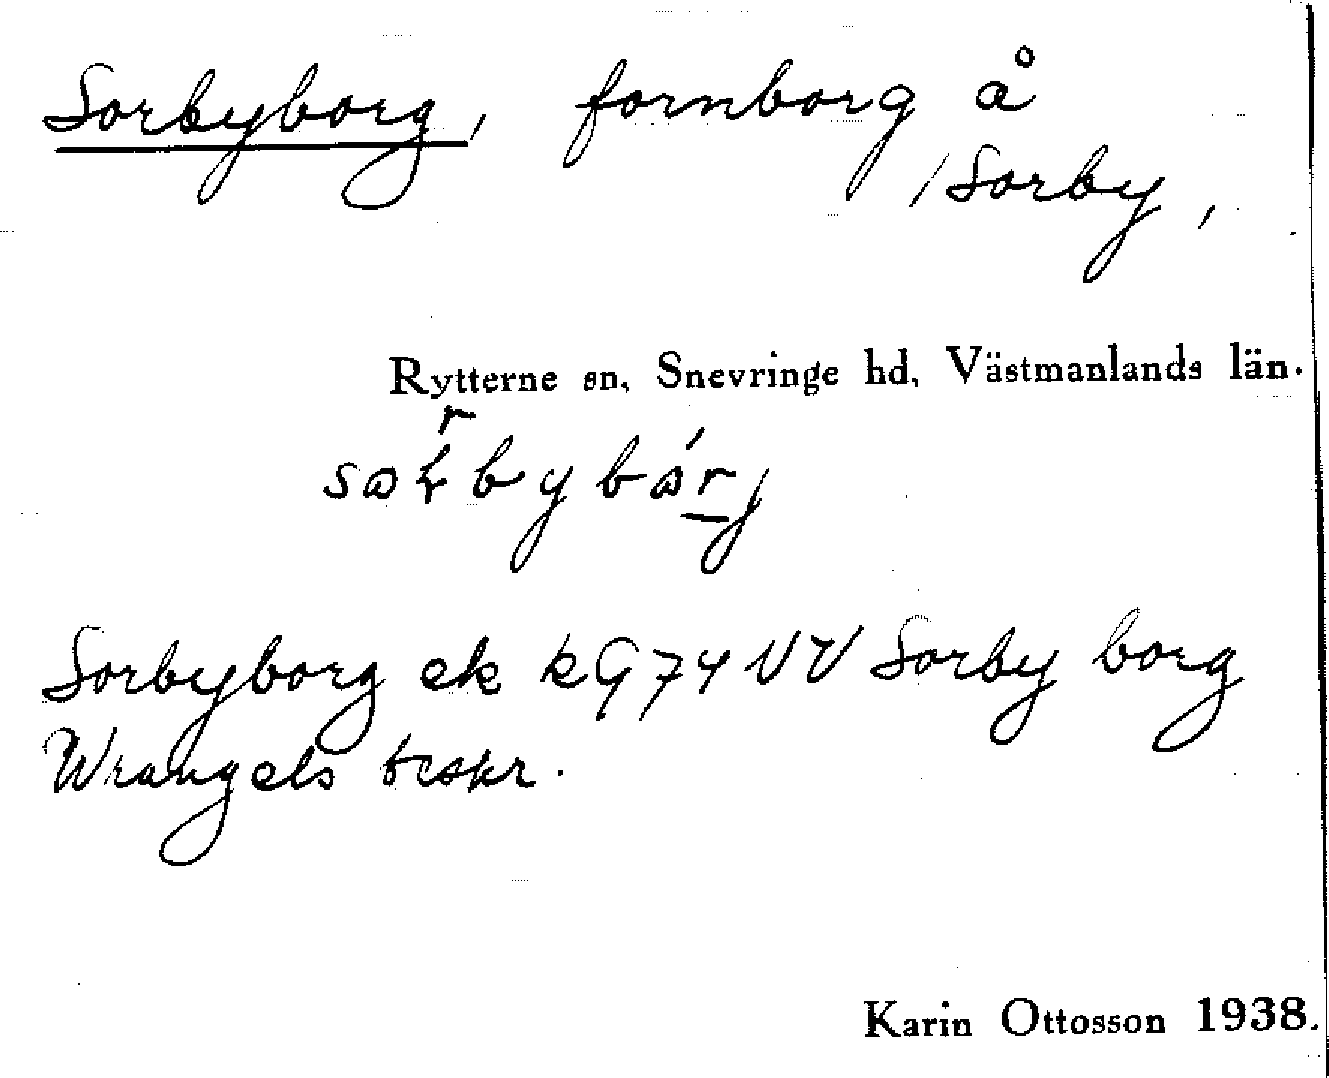 Sorbyborg, fornborg å
/Sorby,
Rytterne sn, Snevringe hd, Västmanlands län.
Sorbyborg ek kG 74 VV Sorby borg
Wrangels beskr.
Karin Ottosson 1938.